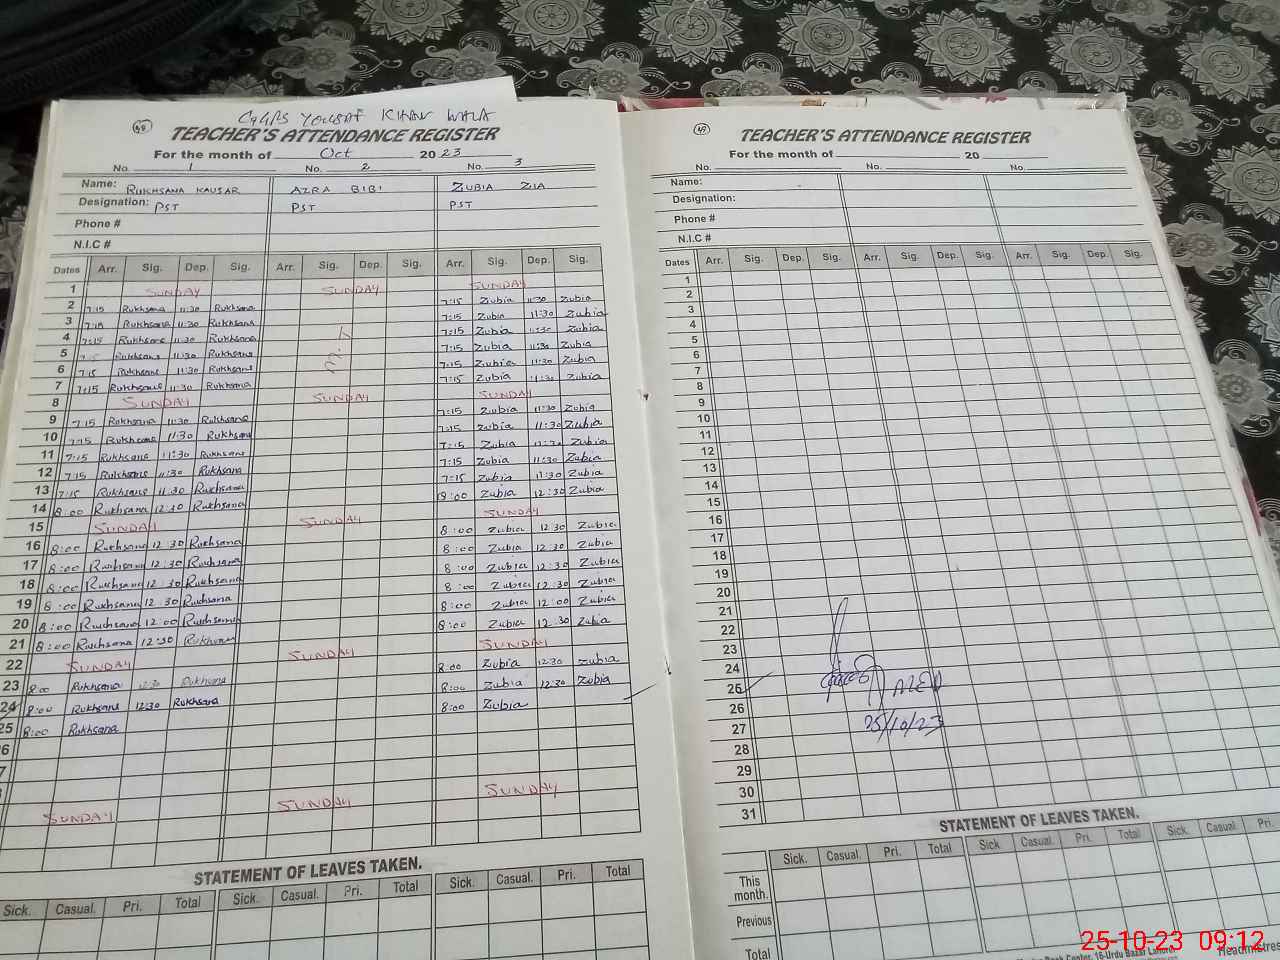 GGPS YOUSAF KHAN WALA
49
TEACHER'S ATTENDANCE REGISTER
For the month of Oct 2023
No. 1 No. 2 No. 3
Name: RUKHSANA KAUSAR AZRA BIBI ZUBIA ZIA
Designation: PST PST PST
Phone #
N.I.C #
Dates Arr. Sig. Dep. Sig. Arr. Sig. Dep. Sig. Arr. Sig. Dep. Sig.
1 SUNDAY SUNDAY SUNDAY
2 7:15 Rukhsana 11:30 Rukhsana 7:15 Zubia 11:30 Zubia
3 7:15 Rukhsana 11:30 Rukhsana 7:15 Zubia 11:30 Zubia
4 7:15 Rukhsana 11:30 Rukhsana 7:15 Zubia 11:30 Zubia
5 7:15 Rukhsana 11:30 Rukhsana 7:15 Zubia 11:30 Zubia
6 7:15 Rukhsana 11:30 Rukhsana 7:15 Zubia 11:30 Zubia
7 7:15 Rukhsana 11:30 Rukhsana 7:15 Zubia 11:30 Zubia
8 SUNDAY SUNDAY SUNDAY
9 7:15 Rukhsana 11:30 Rukhsana 7:15 Zubia 11:30 Zubia
10 7:15 Rukhsana 11:30 Rukhsana 7:15 Zubia 11:30 Zubia
11 7:15 Rukhsana 11:30 Rukhsana 7:15 Zubia 11:30 Zubia
12 7:15 Rukhsana 11:30 Rukhsana 7:15 Zubia 11:30 Zubia
13 7:15 Rukhsana 11:30 Rukhsana 7:15 Zubia 11:30 Zubia
14 8:00 Rukhsana 12:30 Rukhsana 8:00 Zubia 12:30 Zubia
15 SUNDAY SUNDAY SUNDAY
16 8:00 Rukhsana 12:30 Rukhsana 8:00 Zubia 12:30 Zubia
17 8:00 Rukhsana 12:30 Rukhsana 8:00 Zubia 12:30 Zubia
18 8:00 Rukhsana 12:30 Rukhsana 8:00 Zubia 12:30 Zubia
19 8:00 Rukhsana 12:30 Rukhsana 8:00 Zubia 12:30 Zubia
20 8:00 Rukhsana 12:00 Rukhsana 8:00 Zubia 12:00 Zubia
21 8:00 Rukhsana 12:30 Rukhsana 8:00 Zubia 12:30 Zubia
22 SUNDAY SUNDAY SUNDAY
23 8:00 Rukhsana 12:30 Rukhsana 8:00 Zubia 12:30 Zubia
24 8:00 Rukhsana 12:30 Rukhsana 8:00 Zubia 12:30 Zubia
25 8:00 Rukhsana 8:00 Zubia
6
7
SUNDAY SUNDAY SUNDAY
STATEMENT OF LEAVES TAKEN.
Sick. Casual. Pri. Total Sick. Casual. Pri. Total Sick. Casual. Pri. Total
49
TEACHER'S ATTENDANCE REGISTER
For the month of 20
No. No. No.
Name:
Designation:
Phone #
N.I.C #
Dates Arr. Sig. Dep. Sig. Arr. Sig. Dep. Sig. Arr. Sig. Dep. Sig.
1
2
3
4
5
6
7
8
9
10
11
12
13
14
15
16
17
18
19
20
21
22
23
24
25
26
27
28
29
30
31
25/10/23
STATEMENT OF LEAVES TAKEN.
Sick. Casual. Pri. Total Sick Casual. Pri. Total Sick. Casual. Pri.
This month.
Previous
Total
25-10-23 09:12